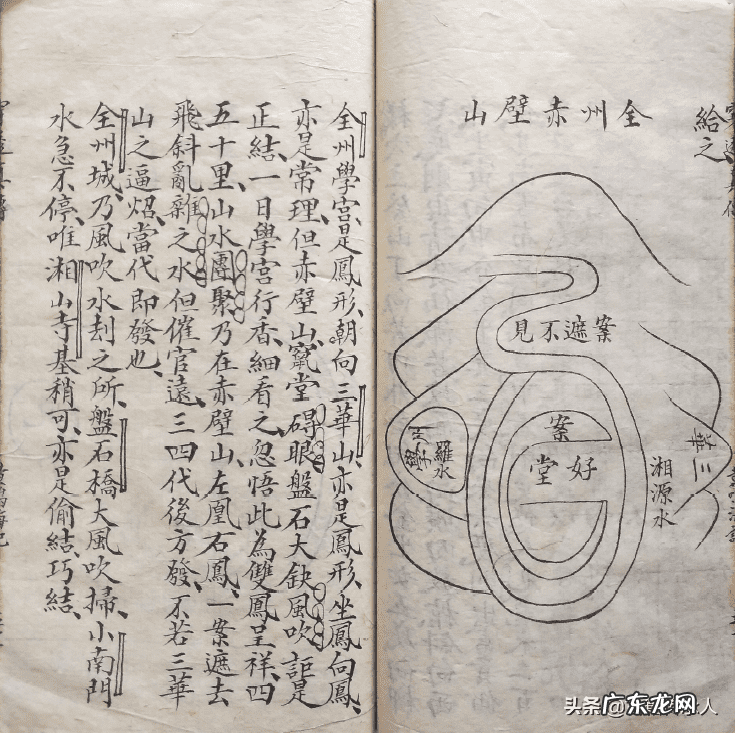 給之
全州赤壁山
案遮不見
案
好堂
羅水
湘源水
三華
全州學宮是鳳形、朝向三華山、亦是鳳形、坐鳳向鳳、
亦是常理、但赤壁山竄堂礙眼盤石大缺風吹、詎是
正結、一日學宮行香、細看之、忽悟此為雙鳳呈祥、四
五十里、山水團聚、乃在赤壁山、左凰右鳳、一案遮去
飛斜亂雜之水但催官遠、三四代後方發、不若三華
山之逼炤、當代即發也、
全州城、乃風吹水刦之所、盤石橋大風吹掃、小南門
水急不停、唯湘山寺基稍可、亦是偷結、巧結、
头条@
人
广东龙网